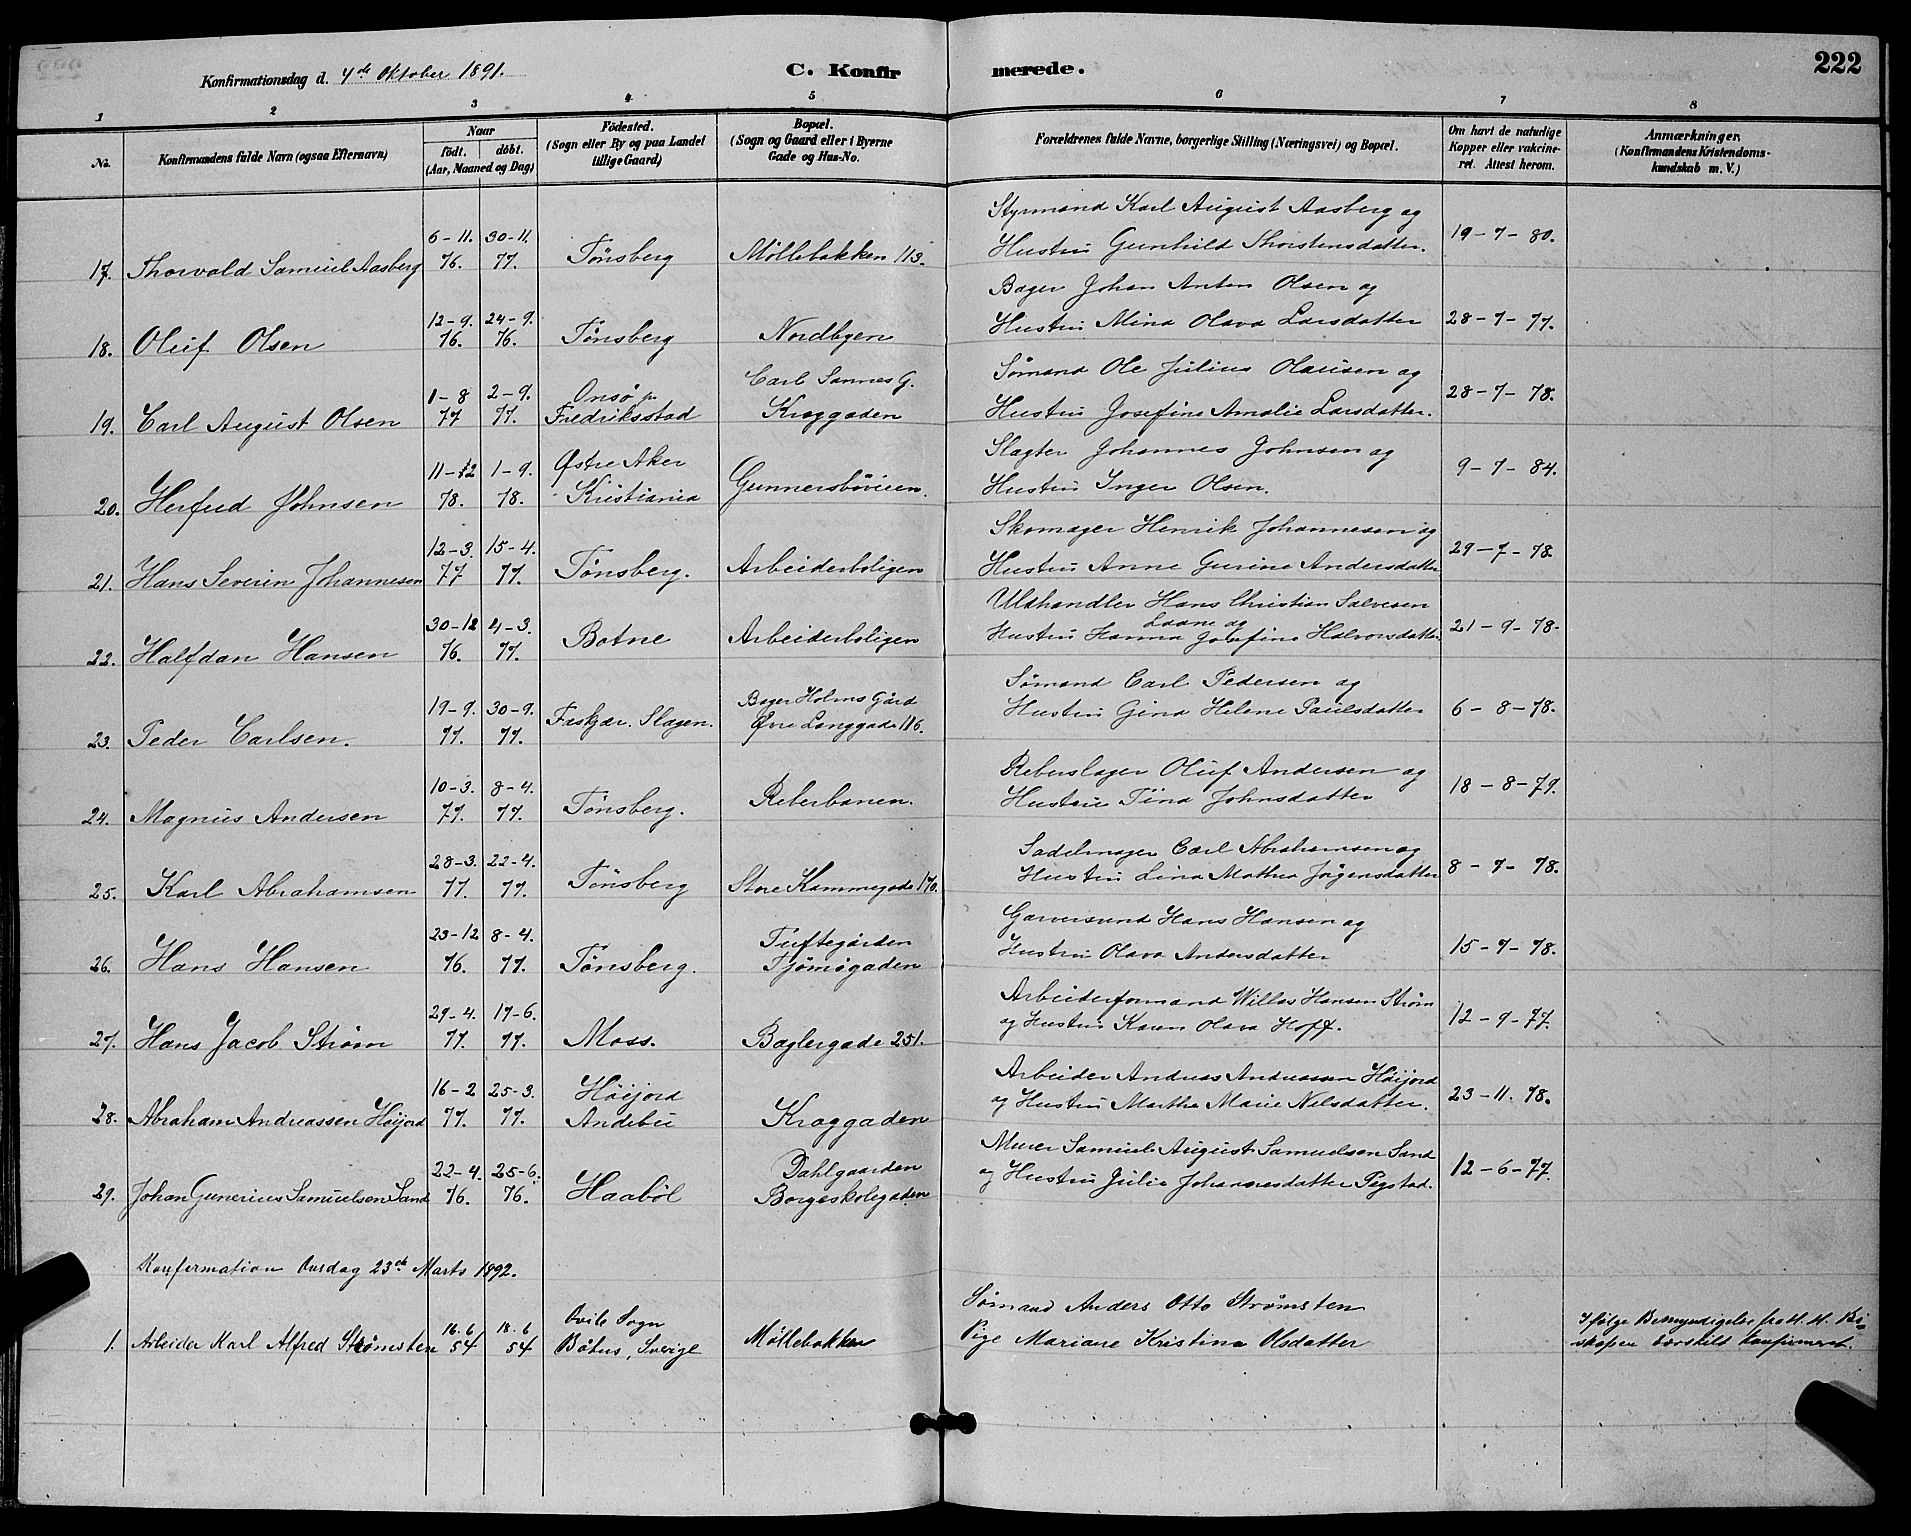 222
Konfirmationsdag d. 4de Oktober 1891.
C. Konfirmerede.
1 2 3 4 5 6 7 8
No.
Konfirmandens fulde Navn (ogsaa Efternavn)
Naar
født. døbt.
(Aar, Maaned og Dag)
Födested.
(Sogn eller By og paa Landet
tillige Gaard)
Bopæl.
(Sogn og Gaard eller i Byerne
Gade og Hus-No.
Forældrenes fulde Navne, borgerlige Stilling (Næringsvei) og Bopæl.
Om havt de naturlige
Kopper eller vakcine-
ret. Attest herom.
Anmærkninger,
(Konfirmandens Kristendoms-
kundskab m. V.)
Styrmand Karl August Aasberg og
6-11. 30-11. Hustru Gunhild Thorstensdatter. 19-7-80.
17. Thorvald Samuel Aasberg 76. 77. Tønsberg Møllebakken 113.
Bager Johan Anton Olsen og
12-9. 24-9. Hustru Mina Olava Larsdatter 28-7-77.
18. Oluf Olsen 76. 76. Tønsberg Nordbyen
Sømand Ole Julius Olausen og
1-8 2-9. Onsø pr. Carl Sannes G. 28-7-78.
19. Carl August Olsen 77 77. Fredriksstad Kraggaden Hustru Josefine Amalie Larsdatter.
Slagter Johannes Johnsen og
11-12 1-9. Østre Aker 9-7-84.
20. Herfred Johnsen 78. 78. Kristiania Gunnersbøveien. Hustru Inger Olsen.
Skomager Henrik Johannesen og
12-3. 15-4. 29-7-78.
21. Hans Severin Johannesen 77 77. Tønsberg. Arbeiderboligen Hustru Anne Gurine Andersdatter
Uldhandler Hans Christian Salvesen
Laane og
30-12 4-3. Hustru Hanna Josefine Halvorsdatter 21-9-78.
22. Halfdan Hansen 76. 77. Botne Arbeiderboligen
Sømand Carl Pedersen og
19-9. 30-9. Bager Holms Gård Hustru Gina Helene Paulsdatter 6-8-78.
23. Peder Carlsen. 77. 77. Faskjær, Slagen. Øvre Langgade 116.
Reberslager Oluf Andersen og
10-3. 8-4. Hustru Tina Johnsdatter 18-8-79.
24. Magnus Andersen 77. 77. Tønsberg. Reberbanen.
Sadelmager Carl Abrahamsen og
28-3. 22-4. Hustru Lina Mathea Jørgensdatter 8-7-78.
25. Karl Abrahamsen 77. 77. Tønsberg Store Kammegade 170.
Garversvend Hans Hansen og
23-12 8-4. Tuftegården Hustru Olava Andersdatter 15-7-78.
26. Hans Hansen 76. 77. Tønsberg. Tjømøgaden
Arbeiderformand Willas Hansen Strøm
29-4. 17-6. og Hustru Karen Olava Hoff. 12-9-77.
27. Hans Jacob Strøm 77. 77. Moss. Baglergade 251.
Arbeider Andreas Andreassen Høijord
16-2 25-3. Høijord og Hustru Marthe Marie Nilsdatter. 23-11.78.
28. Abraham Andreassen Høijord 77. 77. Andebu Kraggaden
Murer Samuel August Samuelsen Sand
22-4. 25-6. Dahlgaarden og Hustru Julie Johannesdatter Pegstad. 12-6-77.
29. Johan Gunerius Samuelsen Sand 76. 76. Haabøl Borgeskolegaden
Konfirmation Onsdag 23de Marts 1892.
Sømand Anders Otto Strømsten
16.6 18.6 Sogn Ifølge Bemyndigelse fra H. H. Bi-
1. Arbeider Karl Alfred Strømsten 54 54 Båhus, Sverige Møllebakken Pige Mariane Kristina Olsdatter skopen særskilt konfirmeret.